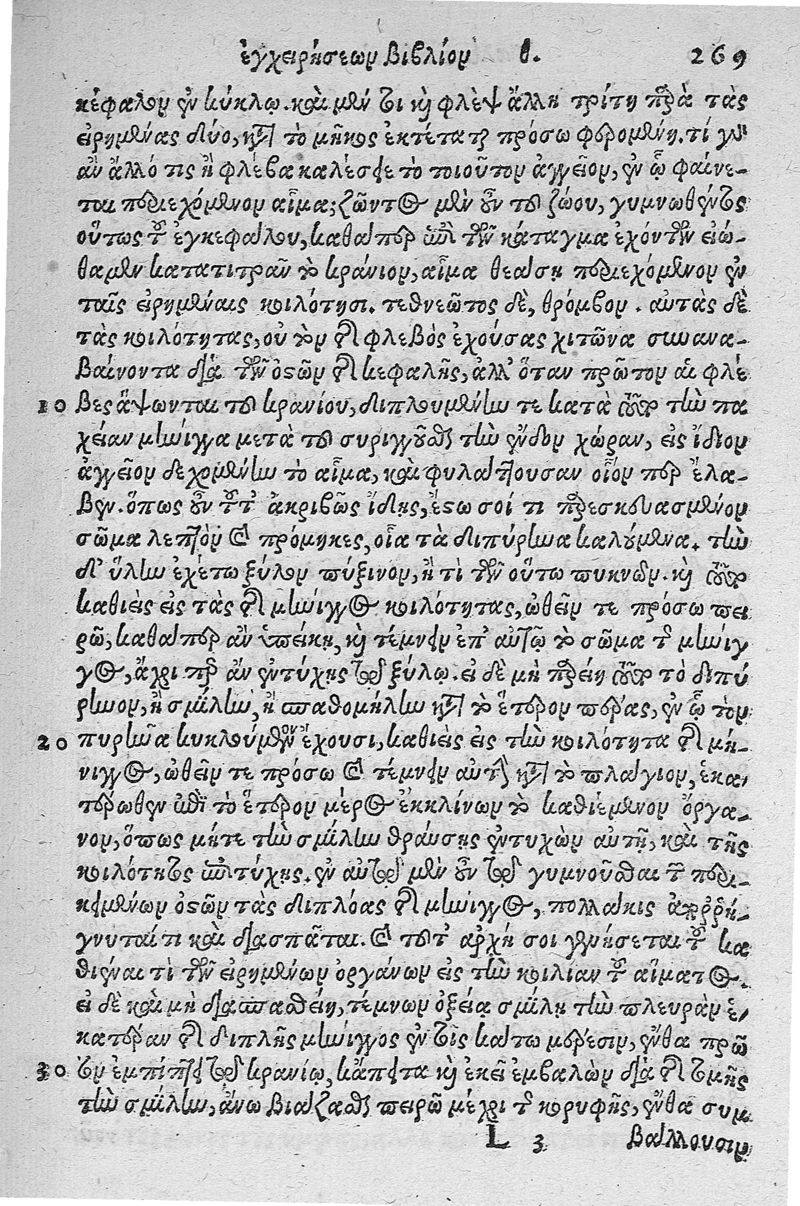 ἐγχειρήσεων βιβλίον θ. 269
κέφαλον ἐν κύκλῳ. καὶ μέν τοι κὴ φλὲψ ἄλλη τρίτη παρὰ τὰς
εἰρημένας δύο, κατὰ τὸ μῆκος ἐκτέταται πρόσω φερομένη. τί γὰρ
ἂν ἄλλό τις ἢ φλέβα καλέσειε τὸ τοιοῦτον ἀγγεῖον, ἐν ᾧ φαίνε-
ται περιεχόμενον αἷμα; ζῶντος μὲν οὖν τοῦ ζώου, γυμνωθέντος
οὕτως τοῦ ἐγκεφάλου, καθάπερ ἐπὶ τῶν κάταγμα ἐχόντων εἰώ-
θαμεν κατατιτρᾶν τὸ κρανίον, αἷμα θεάσῃ περιεχόμενον ἐν
ταῖς εἰρημέναις κοιλότησι. τεθνεῶτος δὲ, θρόμβον. αὐτὰς δὲ
τὰς κοιλότητας, οὐ τὸν τῆς φλεβὸς ἐχούσας χιτῶνα συνανα-
βαίνοντα διὰ τῶν ὀστῶν τῆς κεφαλῆς, ἀλλ' ὅταν πρῶτον αἱ φλέ
10 βες ἅψωνται τοῦ κρανίου, διπλουμένην τε κατὰ τοῦτο τὴν πα
χεῖαν μήνιγγα μετὰ τοῦ συριγγοῦσθαι τὴν ἔνδον χώραν, εἰς ἴδιον
ἀγγεῖον δεχομένην τὸ αἷμα, καὶ φυλάττουσαν οἷόν περ ἔλα-
βεν. ὅπως οὖν τοῦτ' ἀκριβῶς ἴδῃς, ἔστω σοί τι παρεσκευασμένον
σῶμα λεπτὸν καὶ πρόμηκες, οἷα τὰ διπύρηνα καλούμενα. τὴν
δ' ὕλην ἐχέτω ξύλον πύξινον, ἤ τι τῶν οὕτω πυκνῶν. κὴ τοῦτο
καθιεὶς εἰς τὰς τῆς μήνιγγος κοιλότητας, ὠθεῖν τε πρόσω πει
ρῶ, καθάπερ ἂν ὑπείκῃ, κὴ τέμνειν ἐπ' αὐτῷ τὸ σῶμα τῆς μήνιγ
γος, ἄχρι περ ἂν ἐντύχῃς τῷ ξύλῳ. εἰ δὲ μὴ παρείη τοῦτο τὸ διπύ
ρηνον, ἢ σμίλην, ἢ σπαθομήλην κατὰ τὸ ἕτερον πέρας, ἐν ᾧ τὸν
20 πυρῆνα κυκλούμενον ἔχουσι, καθιεὶς εἰς τὴν κοιλότητα τῆς μή-
νιγγος, ὠθεῖν τε πρόσω καὶ τέμνειν αὐτὴν κατὰ τὸ πλάγιον, ἑκα
τέρωθεν ἐπὶ τὸ ἕτερον μέρος ἐκκλίνων τὸ καθιέμενον ὄργα-
νον, ὅπως μήτε τὴν σμίλην θραύσῃς ἐντυχὼν αὐτῇ, καὶ τῆς
κοιλότητος ἐπιτύχῃς. ἐν αὐτῷ μὲν οὖν τῷ γυμνοῦσθαι τῶν περι-
κειμένων ὀστῶν τὰς διπλόας τῆς μήνιγγος, πολλάκις ἀπορρή-
γνυταί τι καὶ διασπᾶται. καὶ τοῦτ' ἀρχή σοι γενήσεται τοῦ κα
θιέναι τι τῶν εἰρημένων ὀργάνων εἰς τὴν κοιλίαν τοῦ αἵματος.
εἰ δὲ καὶ μὴ διασπασθείη, τέμνων ὀξείᾳ σμίλῃ τὴν πλευρὰν ἑ-
κατέραν τῆς διπλῆς μήνιγγος ἐν τοῖς κάτω μέρεσιν, ἔνθα πρῶ
30 τον ἐμπίπτει τῷ κρανίῳ, κἄπειτα κὴ ἐκεῖ ἐμβαλὼν διὰ τῆς τομῆς
τὴν σμίλην, ἄνω βιάζεσθαι πειρῶ μέχρι τῆς κορυφῆς, ἔνθα συμ
L 3 βάλλουσιν